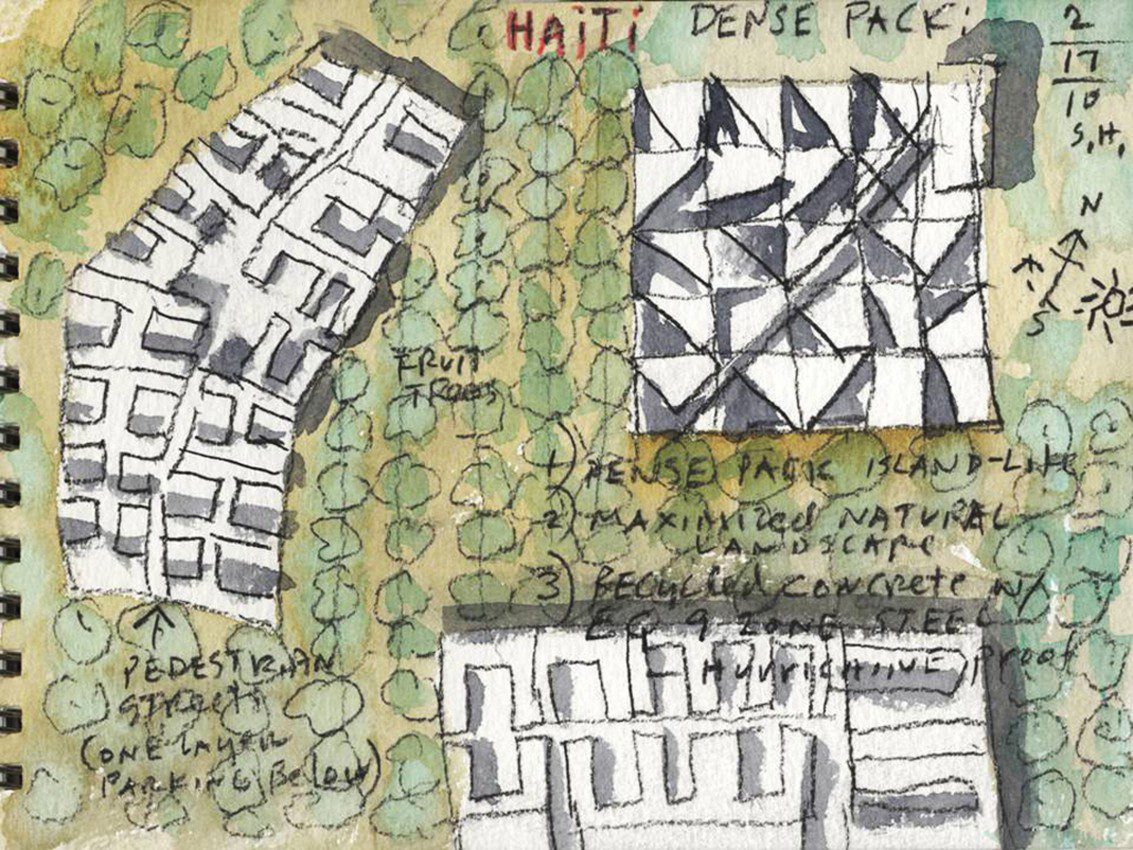 HAiTi DENSE PACK:
2
17
10
S.H.
N
S
FRUIT
TREES
1) DENSE PACK ISLAND-LIFE
2) MAXIMIZED NATURAL
LANDSCAPE
3) RECYCLED CONCRETE W/
EQ 9 ZONE STEEL
HURRICANE Proof
PEDESTRIAN
STREET
(ONE LAYER
PARKING BELOW)